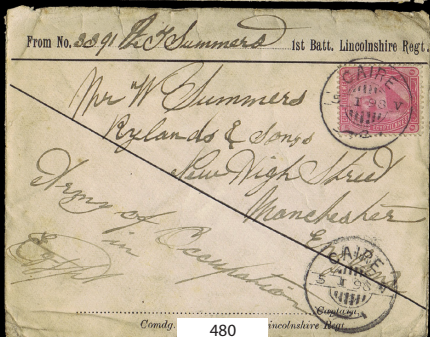 From No. 3391 Pte T Summers 1st Batt. Lincolnshire Regt.
CAIRE
5 I 98 V
Mr W Summers
Rylands & Songs
New High Street
Manchester
England
Army of Occupation
in
Egypt
CAIRE
5 I 98 V
Captain
Comdg. Lincolnshire Regt.
480